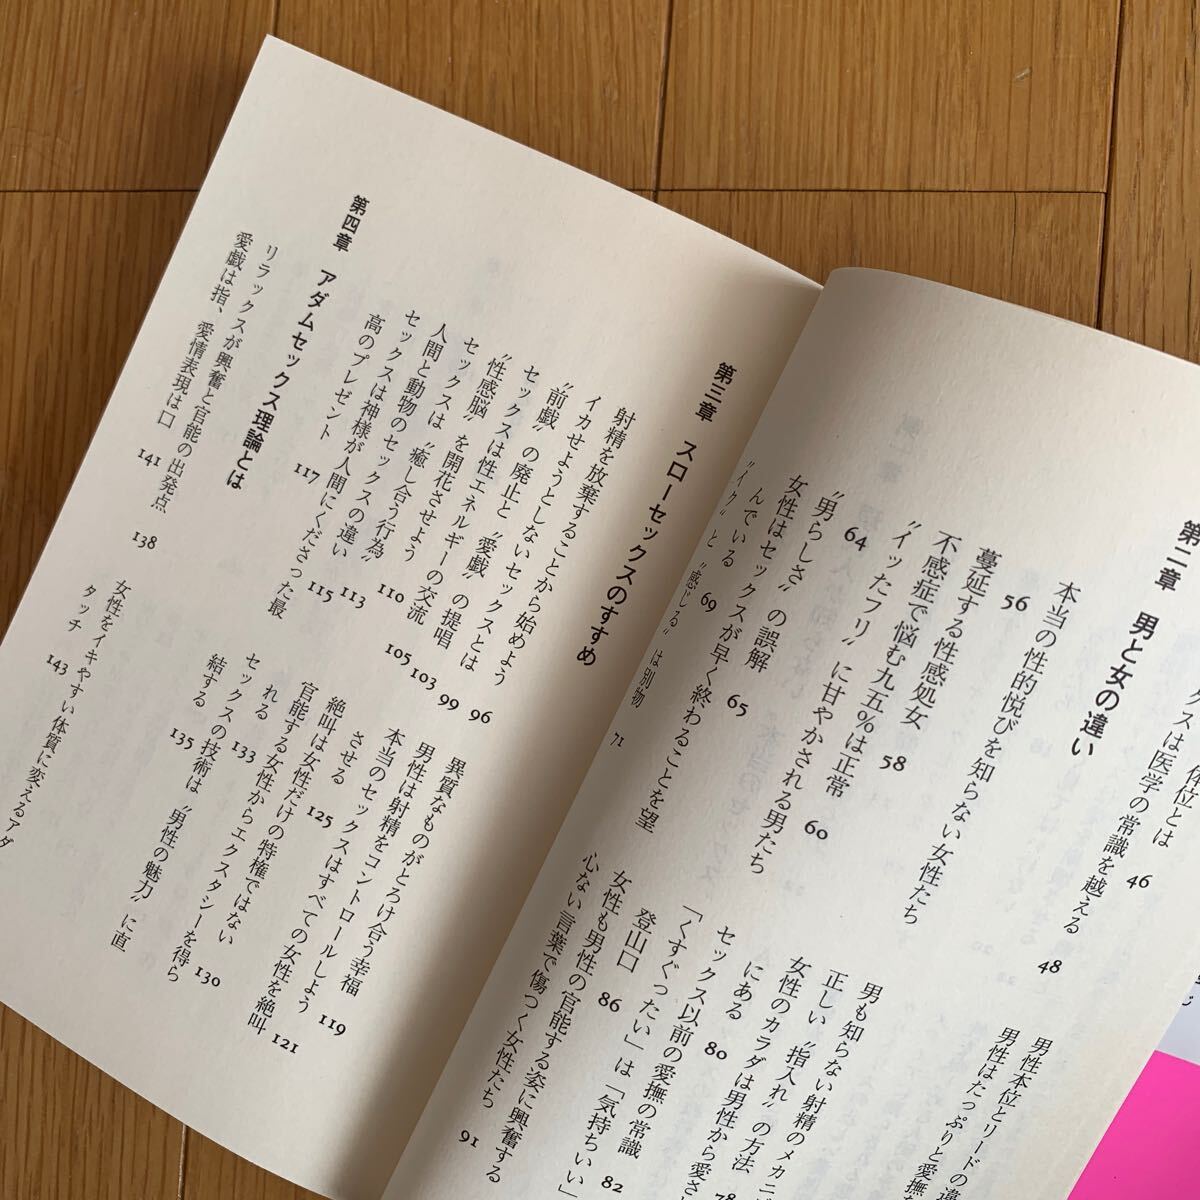 クスは医学の常識を越える 46
第二章 男と女の違い
本当の性的悦びを知らない女性たち 48
蔓延する性感処女 56
不感症で悩む九五%は正常 58
“イッたフリ”に甘やかされる男たち 60
“男らしさ”の誤解 64
女性はセックスが早く終わることを望
んでいる 65
“イク”と“感じる”は別物 69
71
男性本位とリードの違
男性はたっぷりと愛撫
男も知らない射精のメカニ
正しい“指入れ”の方法 78
女性のカラダは男性から愛さ
にある 80
セックス以前の愛撫の常識 82
「くすぐったい」は「気持ちいい」
登山口 86
女性も男性の官能する姿に興奮する
心ない言葉で傷つく女性たち 91
第三章 スローセックスのすすめ
射精を放棄することから始めよう 96
イカせようとしないセックスとは 99
“前戯”の廃止と“愛戯”の提唱 103
セックスは性エネルギーの交流 105
“性感脳”を開花させよう
セックスは“癒し合う行為” 110
人間と動物のセックスの違い 113
セックスは神様が人間にくださった最 115
高のプレゼント 117
異質なものがとろけ合う幸福 119
男性は射精をコントロールしよう 121
本当のセックスはすべての女性を絶叫
させる 125
絶叫は女性だけの特権ではない 130
官能する女性からエクスタシーを得ら
れる 133
セックスの技術は“男性の魅力”に直
結する 135
第四章 アダムセックス理論とは
リラックスが興奮と官能の出発点 138
愛戯は指、愛情表現は口 141
女性をイキやすい体質に変えるアダ
タッチ 143